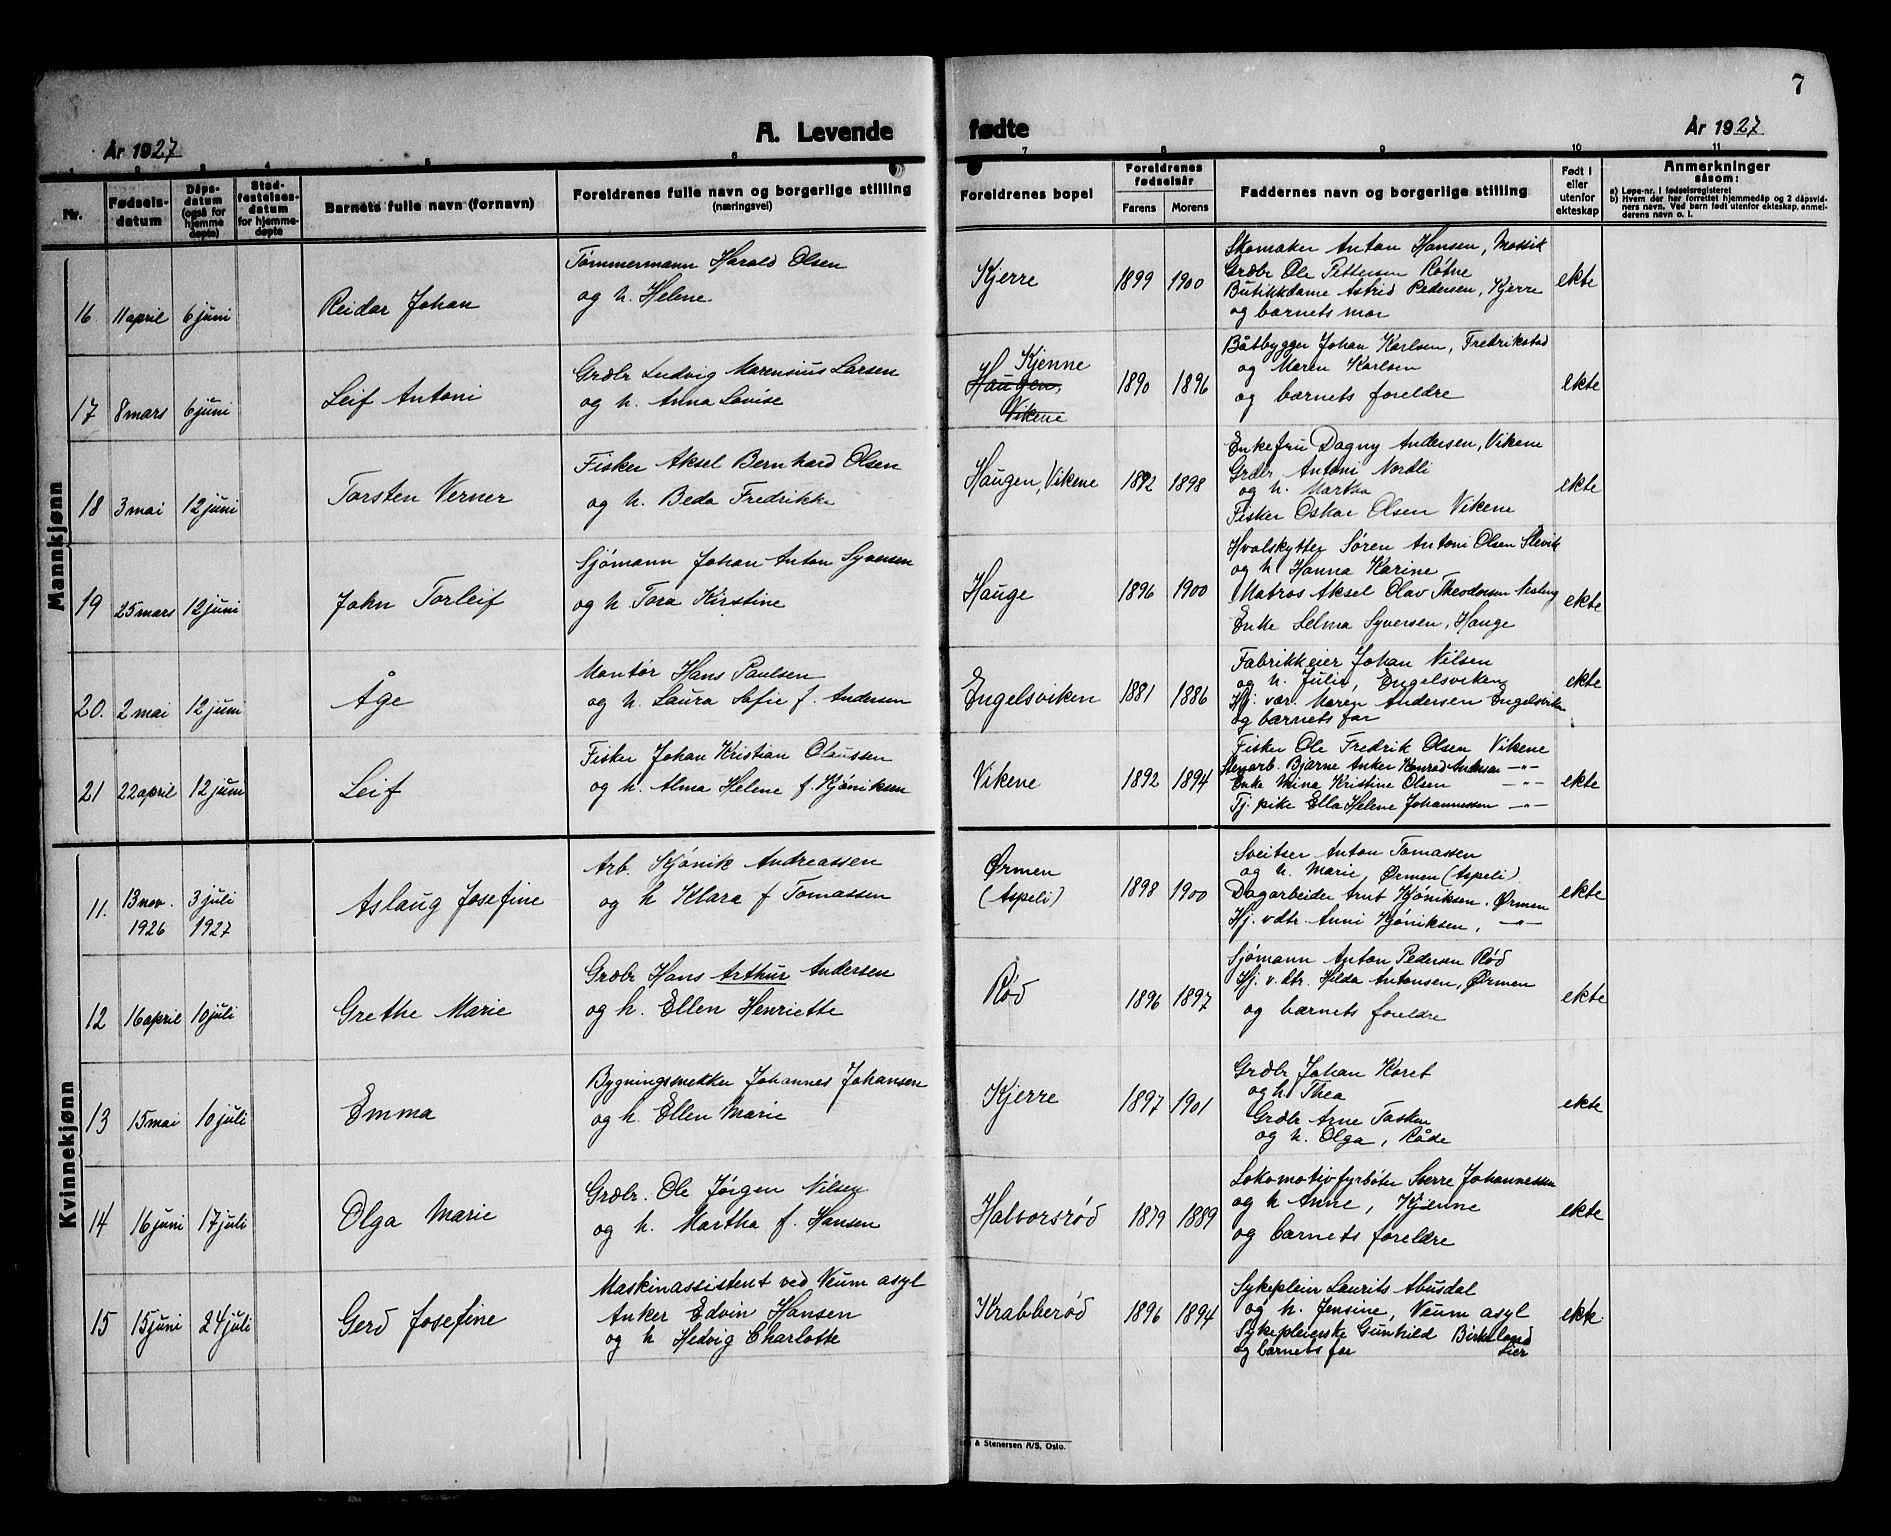 7
År 1927
A. Levende fødte
År 1927
1 2 3 4 5 6 7 8 9 10 11
Nr.
Fødsels-
datum
Dåps-
datum
(også for
hjemme
døpte)
Stad-
festelses-
datum
for hjemme-
døpte
Barnets fulle navn (fornavn)
Foreldrenes fulle navn og borgerlige stilling
(næringsvei)
Foreldrenes bopel
Foreldrenes
fødselsår
Farens Morens
Faddernes navn og borgerlige stilling
Født i
eller
utenfor
ekteskap
Anmerkninger
såsom:
a) Løpe-nr. i fødselsregistret
b) Hvem der har forrettet hjemmedåp og 2 dåpsvid-
ners navn. Ved barn født utenfor ekteskap, anmel-
derens navn o. l.
Mannkjønn
16. 11 april 6 juni
Reidar Johan
Tømmermann Harald Olsen
og h. Helene
Kjerre
1899 1900
Skomaker Anton Hansen, Mossik
Grdbr Ole Pettersen Røtne
Butikkdame Astrid Pedersen, Kjerre
og barnets mor
ekte
17 8 mars 6 juni
Leif Antoni
Grdbr Ludvig Marensius Larsen
og h. Anna Lovise
Kjenne
Haugen,
Vikene
1890 1896
Båtbygger Johan Karlsen, Fredrikstad
og Maren Karlsen
og barnets foreldre
ekte
18 3 mai 12 juni
Torsten Verner
Fisker Aksel Bernhard Olsen
og h. Beda Fredrikke
Haugen, Vikene
1892 1898
Enkefru Dagny Andersen, Vikene
Grdbr Antoni Nordli
og h. Martha
Fisker Oskar Olsen Vikene
ekte
19 25 mars 12 juni
John Torleif
Sjømann Johan Anton Syversen
og h. Tora Kirstine
Hauge
1896 1900
Hvalskytter Søren Antoni Olsen Slevik
og h Hanna Karine
Matros Aksel Olav Theodorsen
Enke Selma Syversen, Hauge
ekte
20. 2 mai 12 juni
Åge
Montør Hans Paulsen
og h. Laura Sofie f. Andersen
Engelsviken
1881 1886
Fabrikkeier Johan Nilsen
og h. Julie, Engelsviken
Hj. vær. Maren Andersen Engelsviken
og barnets far
ekte
21 22 april 12 juni
Leif
Fisker Johan Kristian Olaussen
og h. Alma Helene f. Kjøniksen
Vikene
1892 1894
Fisker Ole Fredrik Olsen Vikene
Stenarb. Bjarne Anker Konrad Andersen —"—
Enke Mina Kristine Olsen —"—
Tj. pike Ella Helene Johannessen —"—
ekte
Kvinnekjønn
11. 13 nov. 3 juli
1926 1927
Aslaug Josefine
Arb. Kjønik Andreassen
og h Klara f Tomassen
Ørmen
(Aspeli)
1898 1900
Sveitser Anton Tomassen
og h. Marie, Ørmen (Aspeli)
Dagarbeider Arnt Kjøniksen, Ørmen
Hj. v dtr. Anni Kjøniksen, —"—
ekte
12 16 april 10 juli
Grethe Marie
Grdbr Hans Arthur Andersen
og h. Ellen Henriette
Rød
1896 1897
Sjømann Anton Pedersen Rød
Hj. v. dtr. Hilda Antonsen, Ørmen
og barnets foreldre
ekte
13 15 mai 10 juli
Emma
Bygningssnekker Johannes Johansen
og h. Ellen Marie
Kjerre
1897 1901
Grdbr Johan Koret
og h. Thea
Grdbr Arne Tasken
og h. Olga, Råde
ekte
14 16 juni 17 juli
Olga Marie
Grdbr. Ole Jørgen Nilsen
og h. Martha f. Hansen
Halvorsrød
1879 1889
Lokomotivfyrbøter Sverre Johannessen
og h Anne, Kjenne
og barnets foreldre
ekte
15 15 juni 24 juli
Gerd Josefine
Maskinassistent ved Veum asyl
Anker Edvin Hansen
og h Hedvig Charlotte
Krabberød
1896 1894
Sykeplein Laurits Abusdal
og h. Jensine, Veum asyl
Sykepleierske Gunhild Birkeland
og barnets far Lier
ekte.
& Stenersen A/S, Oslo.